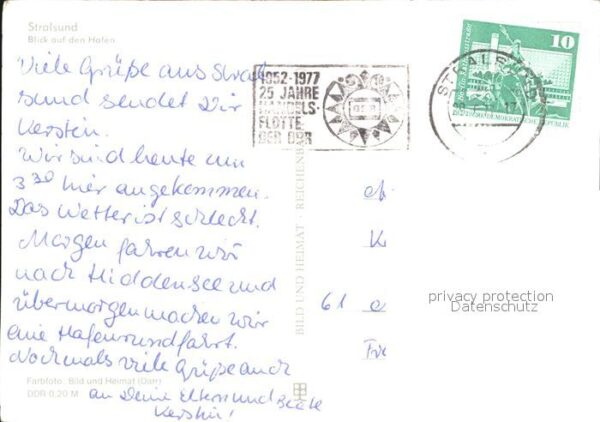 Stralsund
Blick auf den Hafen
Viele Grüße aus Stral
sund sendet Dir
Kerstin.
Wir sind heute um
3 30 hier angekommen.
Das Wetter ist schlecht.
Morgen fahren wir
nach Hiddensee und
übermorgen machen wir
eine Hafenrundfahrt.
Nochmals viele Grüße auch
an Deine Eltern und Beate
Kerstin!
Farbfoto: Bild und Heimat (Darr)
DDR 0,20 M
BILD UND HEIMAT · REICHENB
1952-1977
25 JAHRE
HANDELS-
FLOTTE
DER DDR
DSR
STRALSUND
10
K
61
privacy protection
Datenschutz